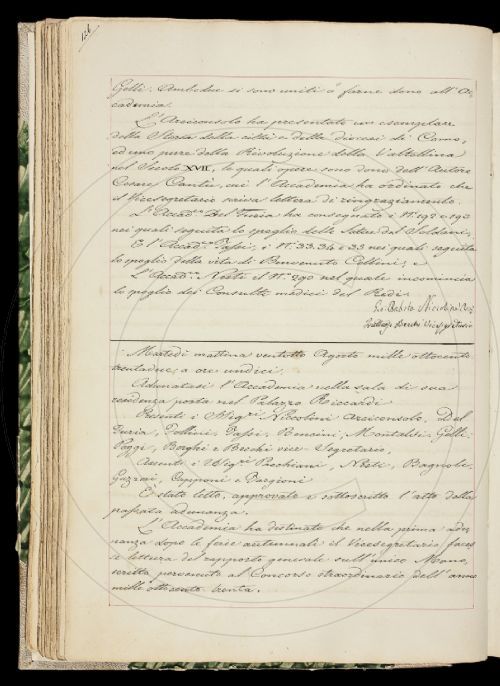 126
Gelli. Ambedue si sono uniti a farne dono all'Ac-
cademia.
L'Arciconsolo ha presentato un esemplare
della Storia della città e della diocesi di Como,
ed uno pure della Rivoluzione della Valtellina
nel Secolo XVII, le quali opere sono dono dell'Autore
Cesare Cantù, cui l'Accademia ha ordinato che
il Vicesegretario scriva lettera di ringraziamento.
L'Accad.co Del Furia ha consegnato i N.i 192 e 193
nei quali seguita lo spoglio delle Satire del Soldani,
E l'Accad.co Tassi, i N.i 33. 34 e 35 nei quali seguita
lo spoglio della vita di Benvenuto Cellini, e
L'Accad.co Nesti il N.o 290 nel quale incomincia
lo spoglio dei Consulti medici del Redi.
Gio. Batista Niccolini
Becchi Vicesegretario
Martedì mattina ventotto Agosto mille ottocento
trentadue, a ore undici.
Adunatasi l'Accademia nella sala di sua
residenza posta nel Palazzo Riccardi
Presenti i Sigg.ri Niccolini Arciconsolo, Del
Furia, Follini, Tassi, Bencini, Montalvi, Gelli,
Poggi, Borghi e Becchi vice-Segretario,
Assenti i Sigg.ri Pacchiani, Nesti, Bagnole,
Gazzeri, Capponi e Targioni
È stato letto, approvato e sottoscritto l'atto della
passata adunanza.
L'Accademia ha destinato che nella prima adu-
nanza dopo le ferie autunnali il Vicesegretario faces-
se lettura del rapporto generale sull'unico Mano-
scritto pervenuto al Concorso straordinario dell'anno
mille ottocento trenta.